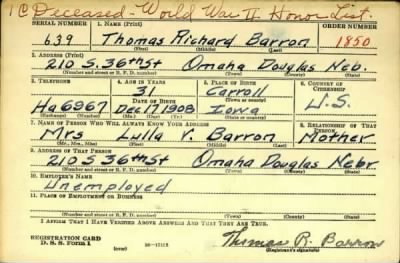 1C Deceased - World War II Honor List.
SERIAL NUMBER 1. NAME (Print) ORDER NUMBER
639 Thomas Richard Barron 1850
(First) (Middle) (Last)
2. ADDRESS (Print)
210 S. 36th St Omaha Douglas Neb.
(Number and street or R. F. D. number) (Town) (County) (State)
3. TELEPHONE 4. AGE IN YEARS 5. PLACE OF BIRTH 6. COUNTRY OF CITIZENSHIP
31 Carroll
DATE OF BIRTH (Town or county)
Ha 6967 Dec 17 1908 Iowa U.S.
(Exchange) (Number) (Mo.) (Day) (Yr.) (State or country)
7. NAME OF PERSON WHO WILL ALWAYS KNOW YOUR ADDRESS 8. RELATIONSHIP OF THAT PERSON
Mrs Lulla V. Barron Mother
(Mr., Mrs., Miss) (First) (Middle) (Last)
9. ADDRESS OF THAT PERSON
210 S 36th St Omaha Douglas Nebr
(Number and street or R. F. D. number) (Town) (County) (State)
10. EMPLOYER'S NAME
Unemployed
11. PLACE OF EMPLOYMENT OR BUSINESS
(Number and street or R. F. D. number) (Town) (County) (State)
I AFFIRM THAT I HAVE VERIFIED ABOVE ANSWERS AND THAT THEY ARE TRUE.
REGISTRATION CARD
D. S. S. Form 1 Thomas R. Barron
(Registrant's signature)